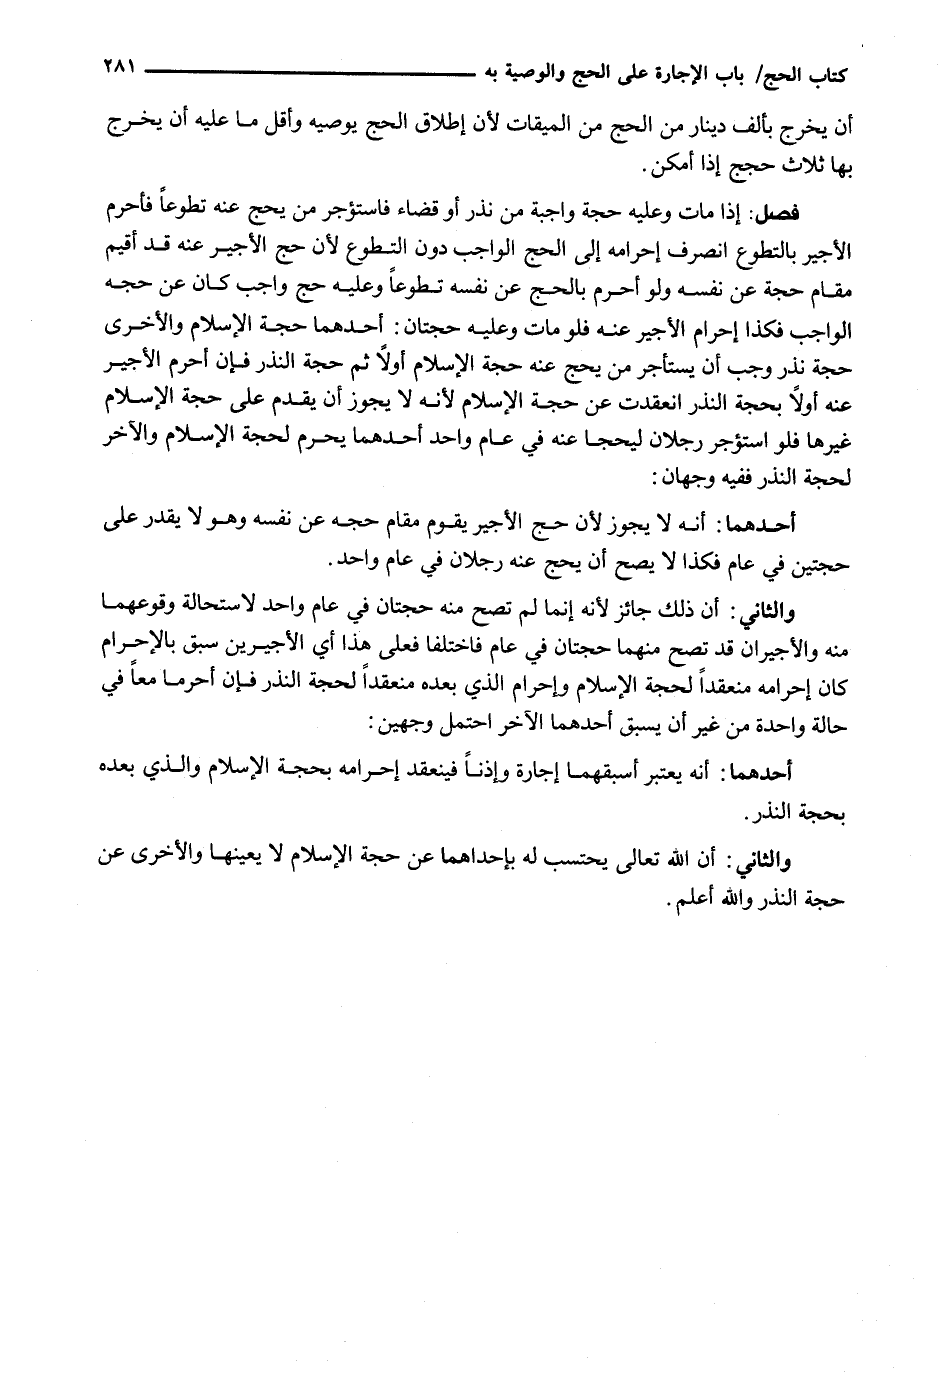 كتاب الحج/ باب الإجارة على الحج والوصية به ٢٨١
أن يخرج بألف دينار من الحج من الميقات لأن إطلاق الحج يوصيه وأقل ما عليه أن يخرج
بها ثلاث حجج إذا أمكن.
فصل: إذا مات وعليه حجة واجبة من نذر أو قضاء فاستؤجر من يحج عنه تطوعاً فأحرم
الأجير بالتطوع انصرف إحرامه إلى الحج الواجب دون التطوع لأن حج الأجير عنه قد أقيم
مقام حجة عن نفسه ولو أحرم بالحج عن نفسه تطوعاً وعليه حج واجب كان عن حجه
الواجب فكذا إحرام الأجير عنه فلو مات وعليه حجتان: أحدهما حجة الإسلام والأخرى
حجة نذر وجب أن يستأجر من يحج عنه حجة الإسلام أولاً ثم حجة النذر فإن أحرم الأجير
عنه أولاً بحجة النذر انعقدت عن حجة الإسلام لأنه لا يجوز أن يقدم على حجة الإسلام
غيرها فلو استؤجر رجلان ليحجا عنه في عام واحد أحدهما يحرم لحجة الإسلام والآخر
لحجة النذر ففيه وجهان:
أحدهما: أنه لا يجوز لأن حج الأجير يقوم مقام حجه عن نفسه وهو لا يقدر على
حجتين في عام فكذا لا يصح أن يحج عنه رجلان في عام واحد.
والثاني: أن ذلك جائز لأنه إنما لم تصح منه حجتان في عام واحد لاستحالة وقوعهما
منه والأجيران قد تصح منهما حجتان في عام فاختلفا فعلى هذا أي الأجيرين سبق بالإحرام
كان إحرامه منعقداً لحجة الإسلام وإحرام الذي بعده منعقداً لحجة النذر فإن أحرما معاً في
حالة واحدة من غير أن يسبق أحدهما الآخر احتمل وجهين:
أحدهما: أنه يعتبر أسبقهما إجارة وإذناً فينعقد إحرامه بحجة الإسلام والذي بعده
بحجة النذر.
والثاني: أن الله تعالى يحتسب له بإحداهما عن حجة الإسلام لا يعينها والأخرى عن
حجة النذر والله أعلم.